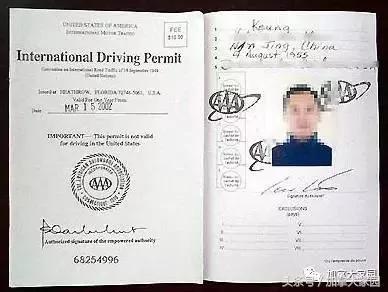 UNITED STATES OF AMERICA
INTERNATIONAL MOTOR TRAFFIC
FEE
$10.00
International Driving Permit
Convention on International Road Traffic of 19 September 1949
(United Nations)
Issued at HEATHROW, FLORIDA 32746-5063, U.S.A.
Valid For One Year From:
Date MAR 15 2002
IMPORTANT—This permit is not valid
for driving in the United States
AMERICAN AUTOMOBILE ASSOCIATION
INCORPORATED
AAA
Authorized signature of the empowered authority
68254996
1. Keung
2.
3. Nan Jing, China
4. 9 August 1955
5.
AAA
AAA
Signature du titulaire
EXCLUSIONS
I
II
III
IV
V
VI
VII
VIII
加拿大家园
头条号 / 加拿大家园